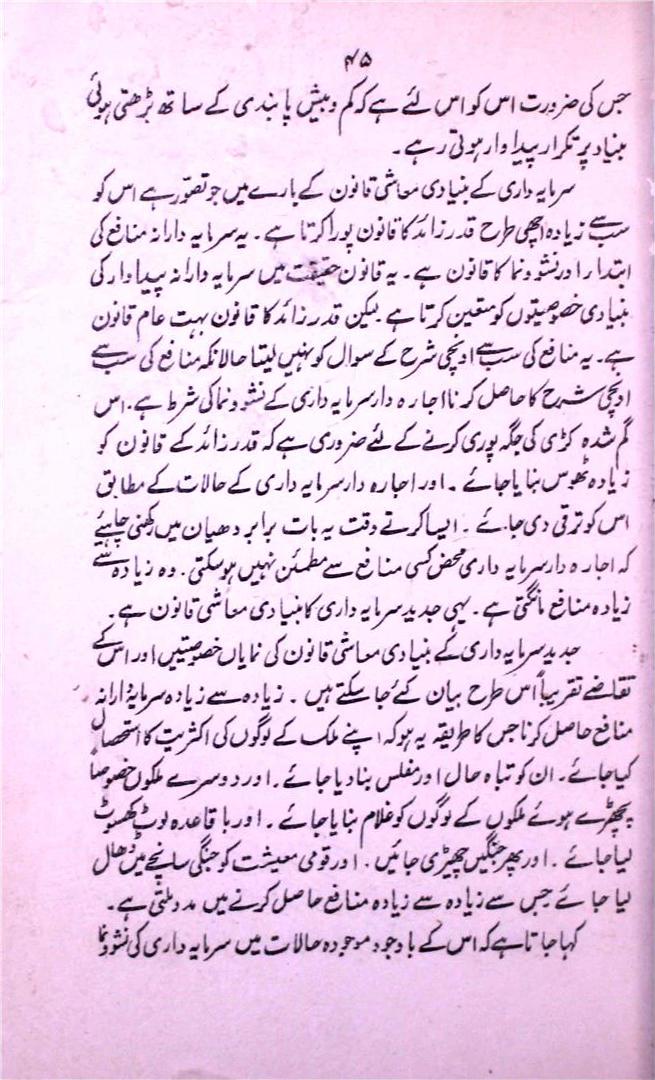 ۴۵
جس کی ضرورت اس کو اس لئے ہے کہ کم و بیش پابندی کے ساتھ بڑھتی ہوئی
بنیاد پر تکرار پیداوار ہوتی رہے۔
سرمایہ داری کے بنیادی معاشی قانون کے بارے میں جو تصوّر ہے اس کو
سب سے زیادہ اچھی طرح قدر زائد کا قانون پورا کرتا ہے۔ یہ سرمایہ دارانہ منافع کی
ابتدا اور نشوونما کا قانون ہے۔ یہ قانون حقیقت میں سرمایہ دارانہ پیداوار کی
بنیادی خصوصیتوں کو متعین کرتا ہے لیکن قدر زائد کا قانون بہت عام قانون
ہے۔ یہ منافع کی سب سے اونچی شرح کے سوال کو نہیں لیتا حالانکہ منافع کی سب سے
اونچی شرح کا حاصل کرنا اجارہ دار سرمایہ داری کے نشوونما کی شرط ہے۔ اس
گم شدہ کڑی کی جگہ پوری کرنے کے لئے ضروری ہے کہ قدر زائد کے قانون کو
زیادہ ٹھوس بنایا جائے۔ اور اجارہ دار سرمایہ داری کے حالات کے مطابق
اس کو ترقی دی جائے۔ ایسا کرتے وقت یہ بات برابر دھیان میں رکھنی چاہئے
کہ اجارہ دار سرمایہ داری محض کسی منافع سے مطمئن نہیں ہو سکتی۔ وہ زیادہ سے
زیادہ منافع مانگتی ہے۔ یہی جدید سرمایہ داری کا بنیادی معاشی قانون ہے۔
جدید سرمایہ داری کے بنیادی معاشی قانون کی نمایاں خصوصیتیں اور اس کے
تقاضے تقریباً اس طرح بیان کئے جا سکتے ہیں۔ زیادہ سے زیادہ سرمایہ دارانہ
منافع حاصل کرنا جس کا طریقہ یہ ہو کہ اپنے ملک کے لوگوں کی اکثریت کا استحصال
کیا جائے۔ ان کو تباہ حال اور مفلس بنا دیا جائے۔ اور دوسرے ملکوں خصوصاً
پچھڑے ہوئے ملکوں کے لوگوں کو غلام بنایا جائے۔ اور باقاعدہ لوٹ کھسوٹ
لیا جائے۔ اور پھر جنگیں چھیڑی جائیں۔ اور قومی معیشت کو جنگی سانچے میں ڈھال
لیا جائے جس سے زیادہ سے زیادہ منافع حاصل کرنے میں مدد ملتی ہے۔
کہا جاتا ہے کہ اس کے باوجود موجودہ حالات میں سرمایہ داری کی نشوونما